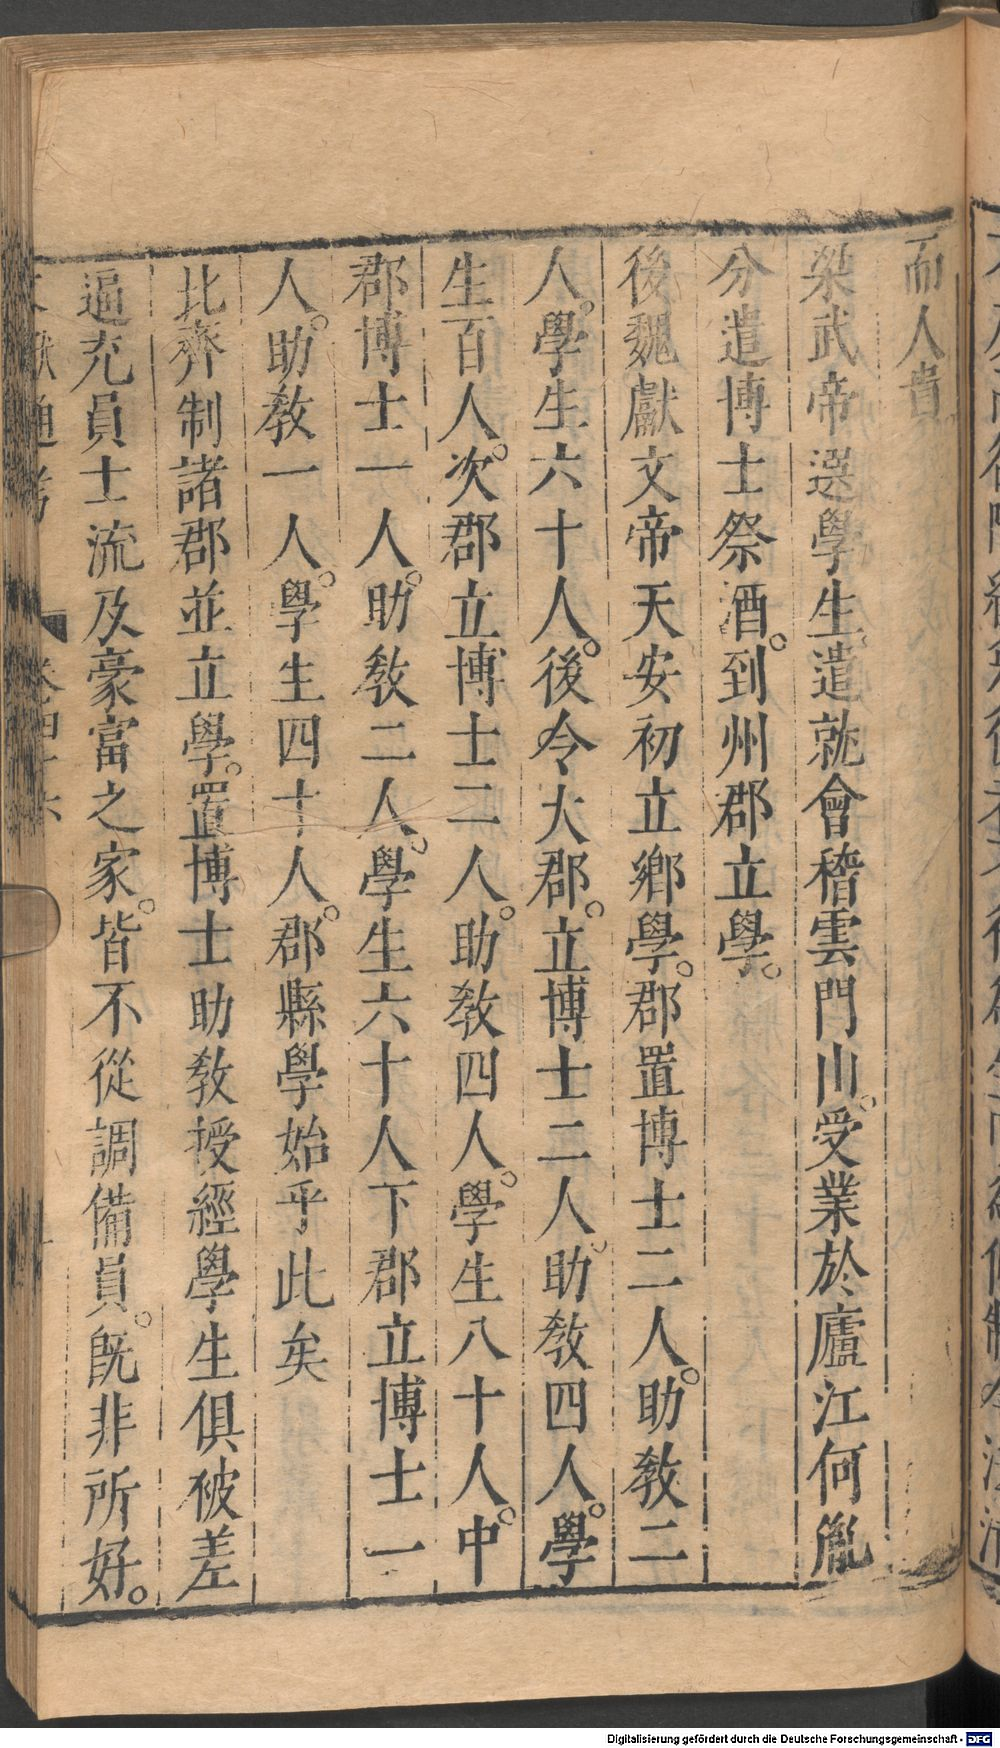 而人貴
梁武帝選學生遣就會稽雲門山。受業於廬江何胤
分遣博士祭酒。到州郡立學。
後魏獻文帝天安初立鄉學。郡置博士二人。助敎二
人。學生六十人。後令大郡。立博士二人。助敎四人。學
生百人。次郡立博士二人。助敎四人。學生八十人。中
郡博士一人。助敎二人。學生六十人下郡立博士一
人。助敎一人。學生四十人。郡縣學始乎此矣
北齊制諸郡並立學。置博士助敎授經學生俱被差
逼充員士流及豪富之家。皆不從調備員。旣非所好。
卷四十六
Digitalisierung gefördert durch die Deutsche Forschungsgemeinschaft - DFG